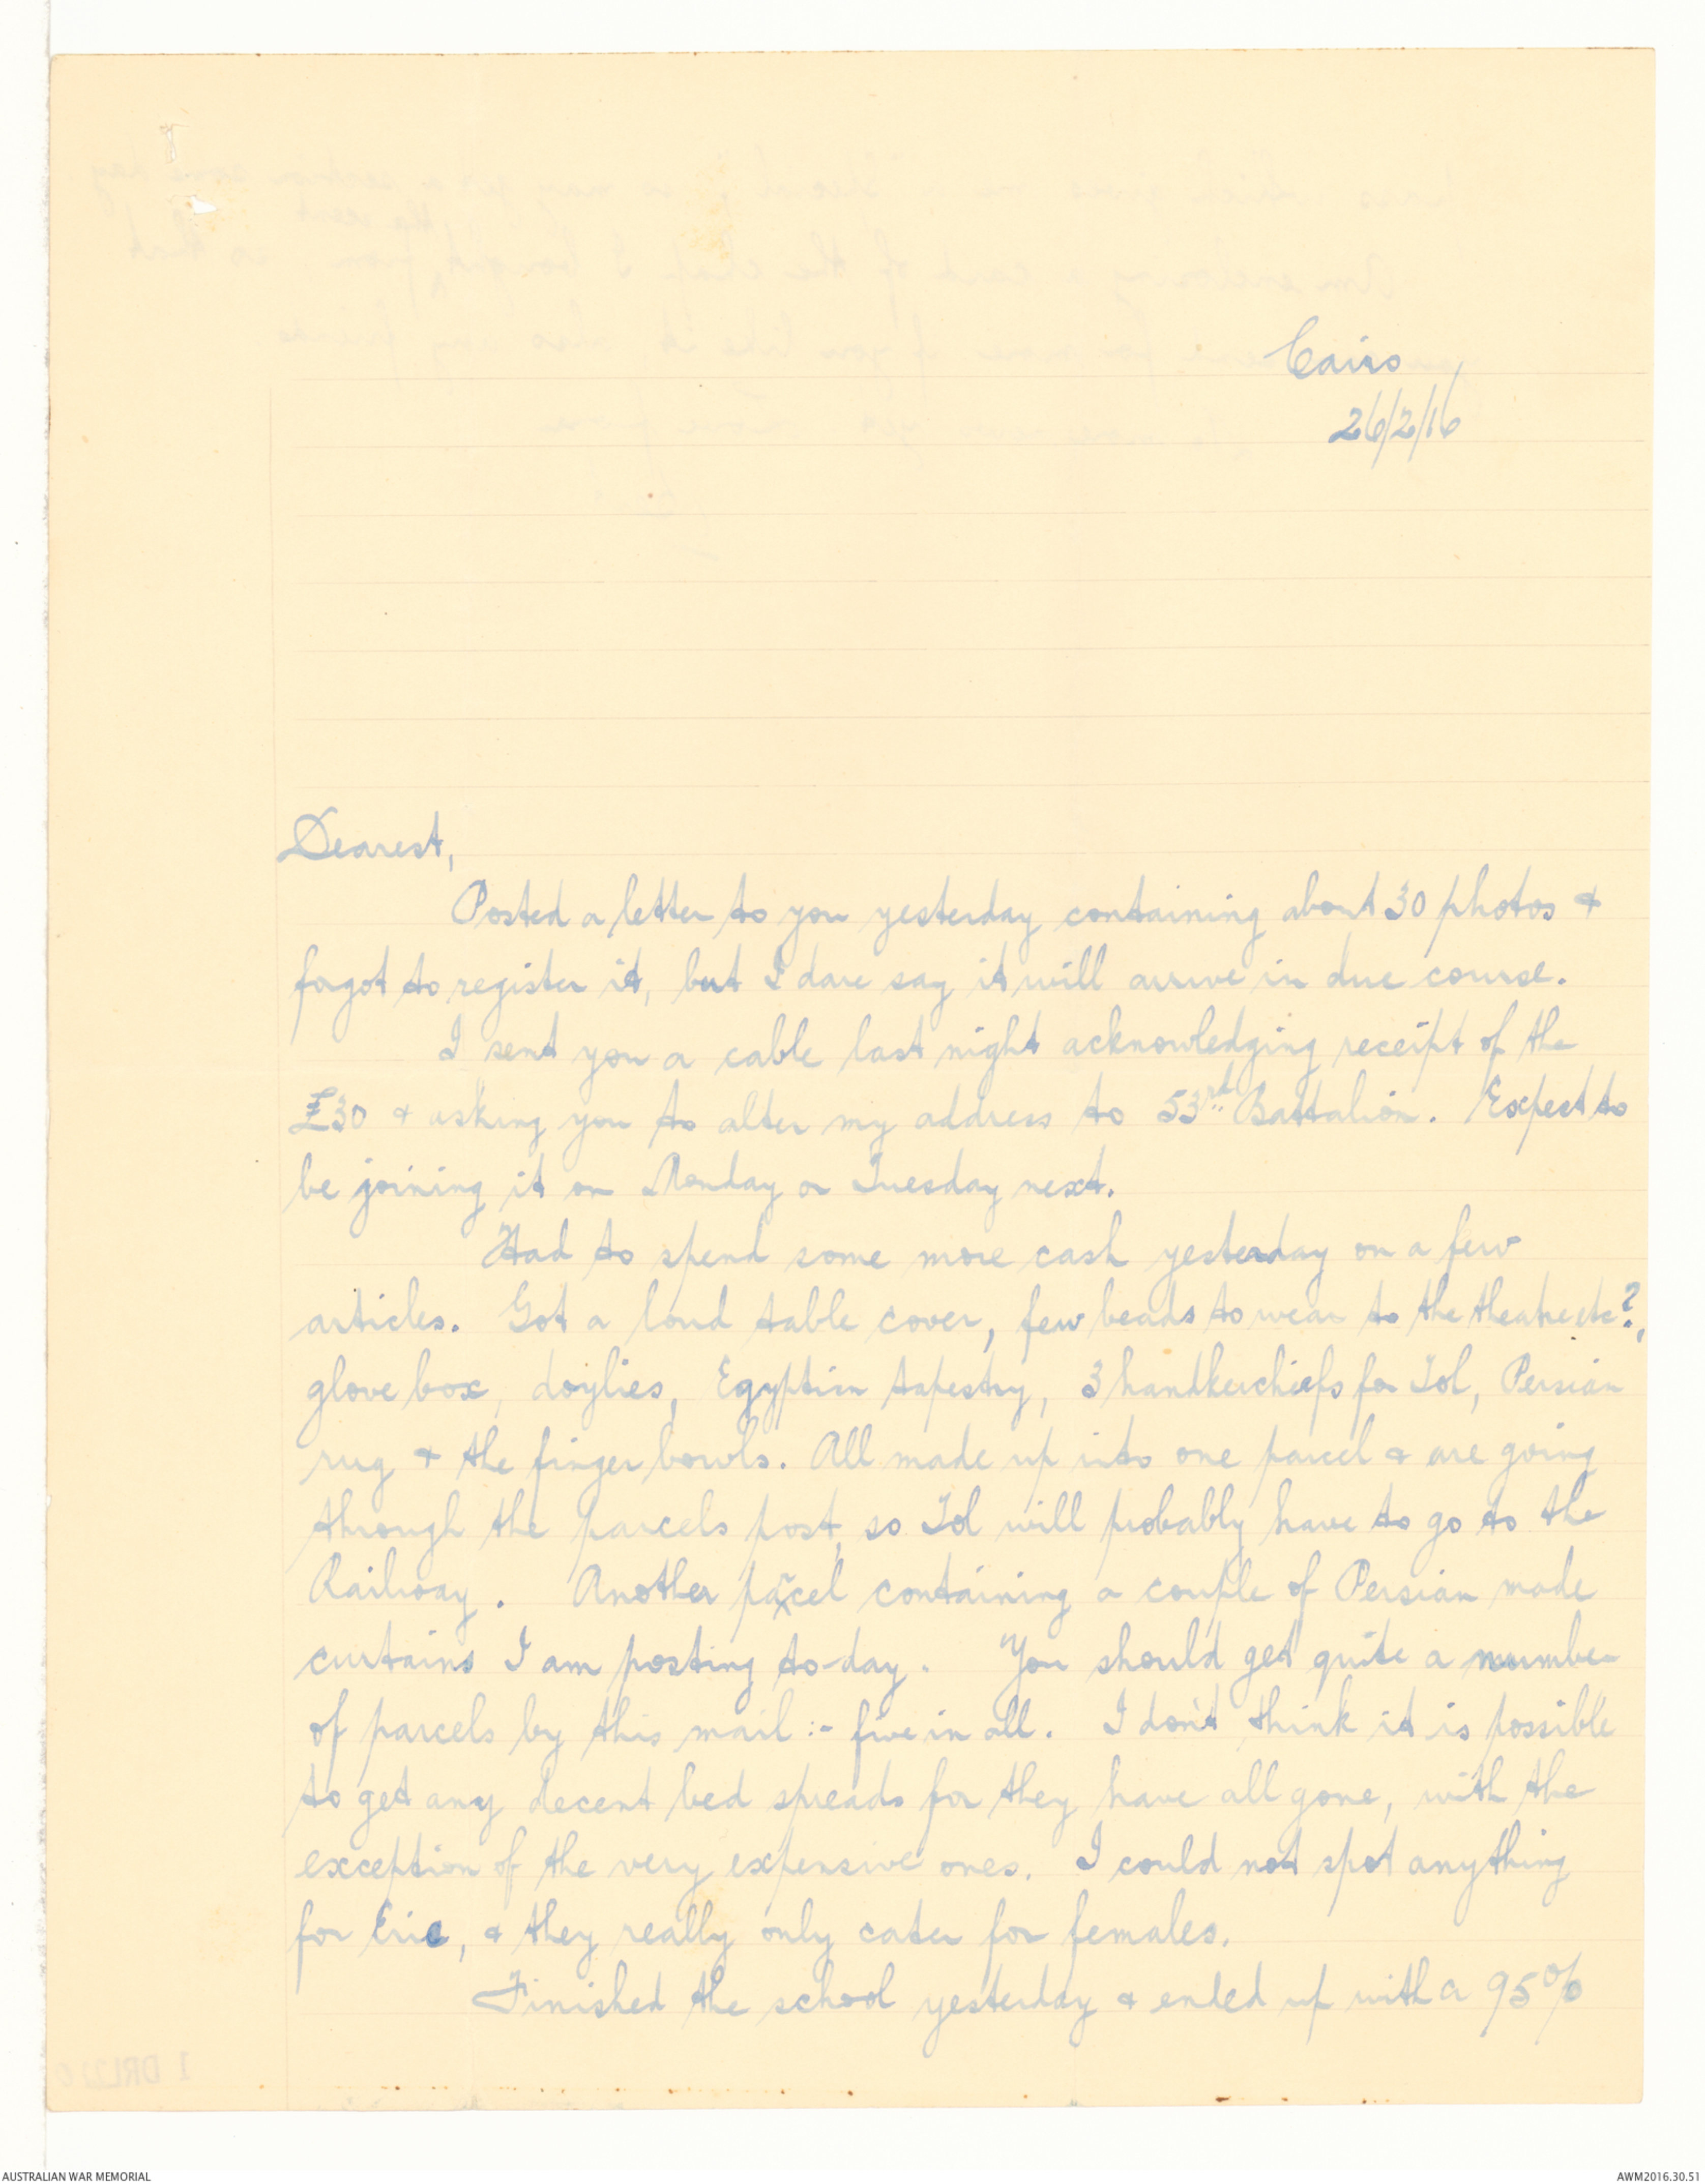 Cairo
26/2/16
Dearest,
Posted a letter to you yesterday containing about 30 photos &
forgot to register it, but I dare say it will arrive in due course.
I sent you a cable last night acknowledging receipt of the
£30 & asking you to alter my address to 53rd Battalion. Expect to
be joining it on Monday or Tuesday next.
Had to spend some more cash yesterday on a few
articles. Got a loud table cover, few beads to wear to the theatre etc?,
glove box, doylies, Egyptian tapestry, 3 handkerchiefs for Tol, Persian
rug & the finger bowls. All made up into one parcel & are going
through the parcels post, so Tol will probably have to go to the
Railway. Another parcel containing a couple of Persian made
curtains I am posting to-day. You should get quite a number
of parcels by this mail :- five in all. I don't think it is possible
to get any decent bed spreads for they have all gone, with the
exception of the very expensive ones. I could not spot anything
for Eric, & they really only cater for females.
Finished the school yesterday & ended up with a 95%
AUSTRALIAN WAR MEMORIAL
AWM2016.30.51